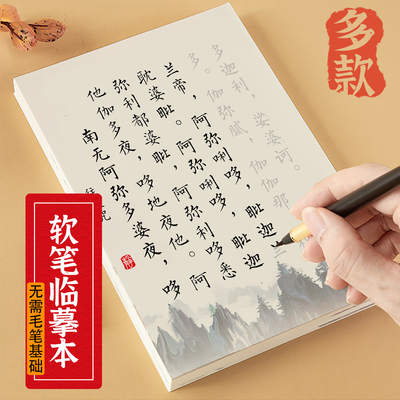 多款
南无阿弥多婆夜，哆
他伽多夜，哆地夜他。阿
弥利都婆毗，阿弥利哆悉
耽婆毗。阿弥唎哆，毗迦
兰帝，阿弥唎哆，毗迦
多。伽弥腻，伽伽那
多迦利，娑婆诃。
软笔临摹本
无需毛笔基础